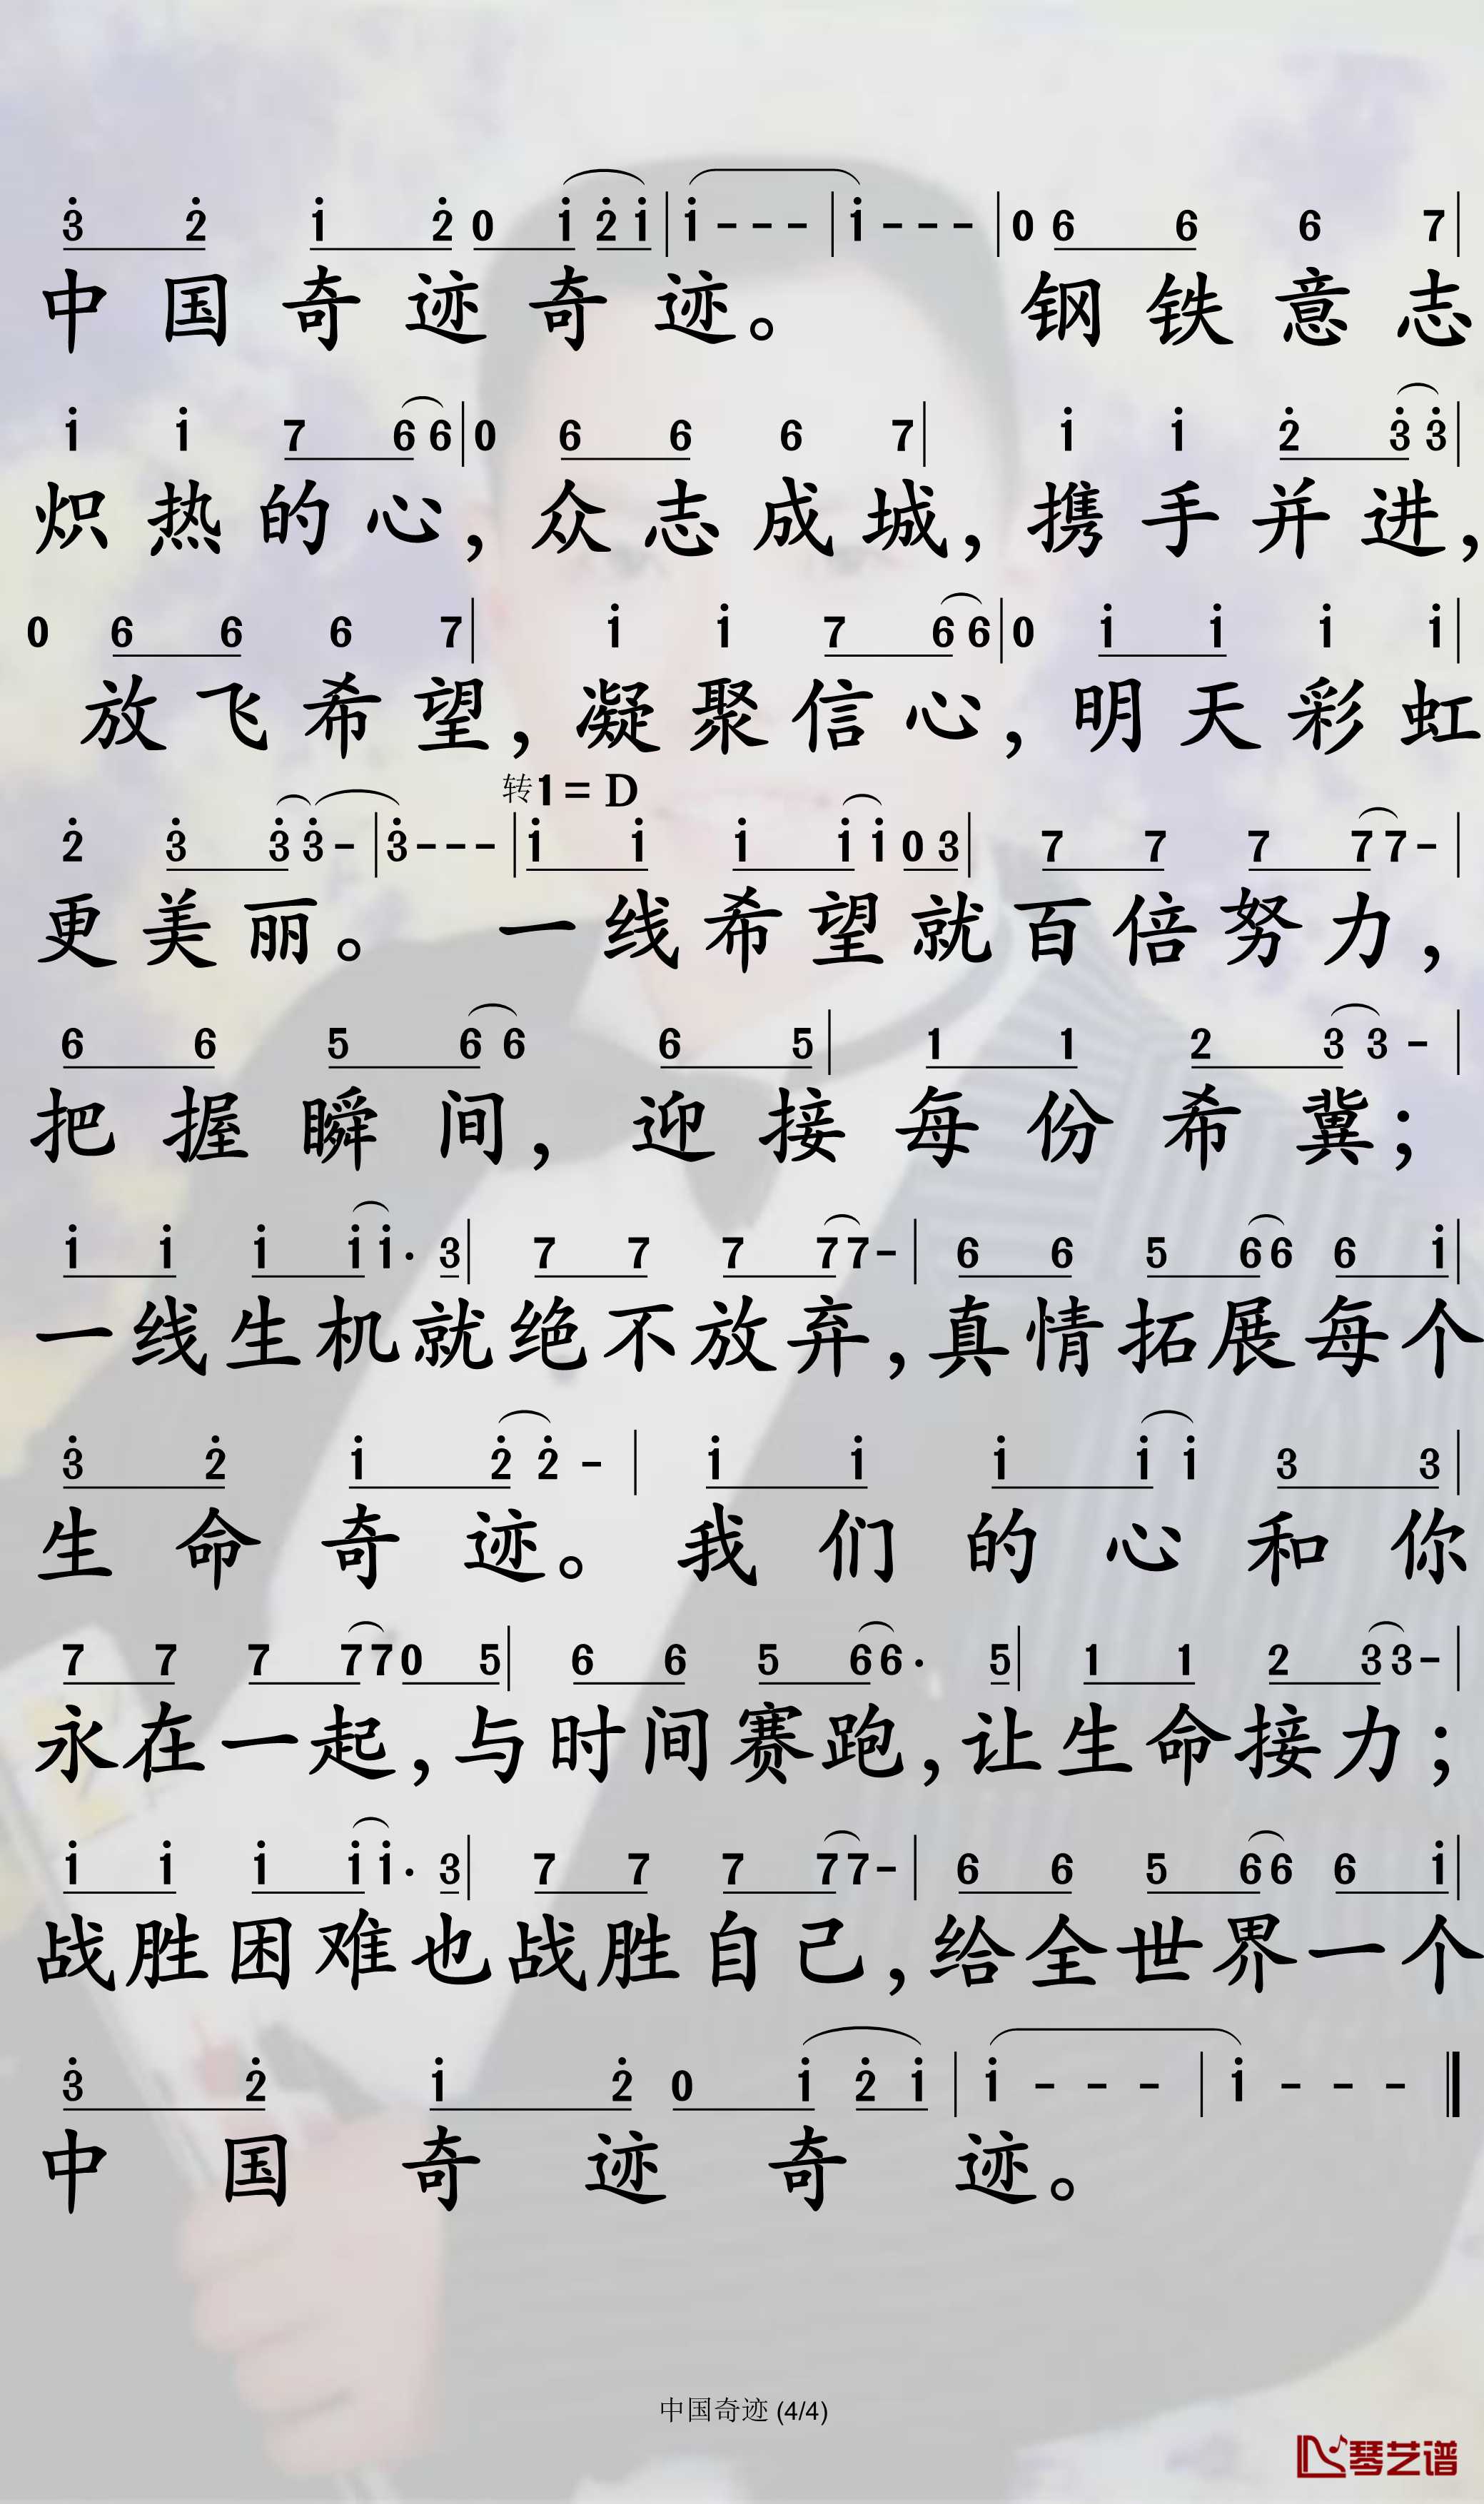 3̇ 2̇ 1̇ 2̇ 0 1̇ 2̇ 1̇ | 1̇ - - - | 1̇ - - - | 0 6 6 6 7 |
中国奇迹奇迹。 钢铁意志
1̇ 1̇ 7 6 6 | 0 6 6 6 7 | 1̇ 1̇ 2̇ 3̇ 3̇ |
炽热的心，众志成城，携手并进，
0 6 6 6 7 | 1̇ 1̇ 7 6 6 | 0 1̇ 1̇ 1̇ 1̇ |
放飞希望，凝聚信心，明天彩虹
转1=D
2̇ 3̇ 3̇ 3̇ - | 3̇ - - - | 1̇ 1̇ 1̇ 1̇ 1̇ 0 3 | 7 7 7 7 7 - |
更美丽。 一线希望就百倍努力，
6 6 5 6 6 6 5 | 1 1 2 3 3 - |
把握瞬间，迎接每份希冀；
1̇ 1̇ 1̇ 1̇ 1̇· 3 | 7 7 7 7 7 - | 6 6 5 6 6 6 1̇ |
一线生机就绝不放弃，真情拓展每个
3̇ 2̇ 1̇ 2̇ 2̇ - | 1̇ 1̇ 1̇ 1̇ 1̇ 3 3 |
生命奇迹。我们的心和你
7 7 7 7 7 0 5 | 6 6 5 6 6· 5 | 1 1 2 3 3 - |
永在一起，与时间赛跑，让生命接力；
1̇ 1̇ 1̇ 1̇ 1̇· 3 | 7 7 7 7 7 - | 6 6 5 6 6 6 1̇ |
战胜困难也战胜自己，给全世界一个
3̇ 2̇ 1̇ 2̇ 0 1̇ 2̇ 1̇ | 1̇ - - - | 1̇ - - - ‖
中国奇迹奇迹。
中国奇迹 (4/4)
琴艺谱